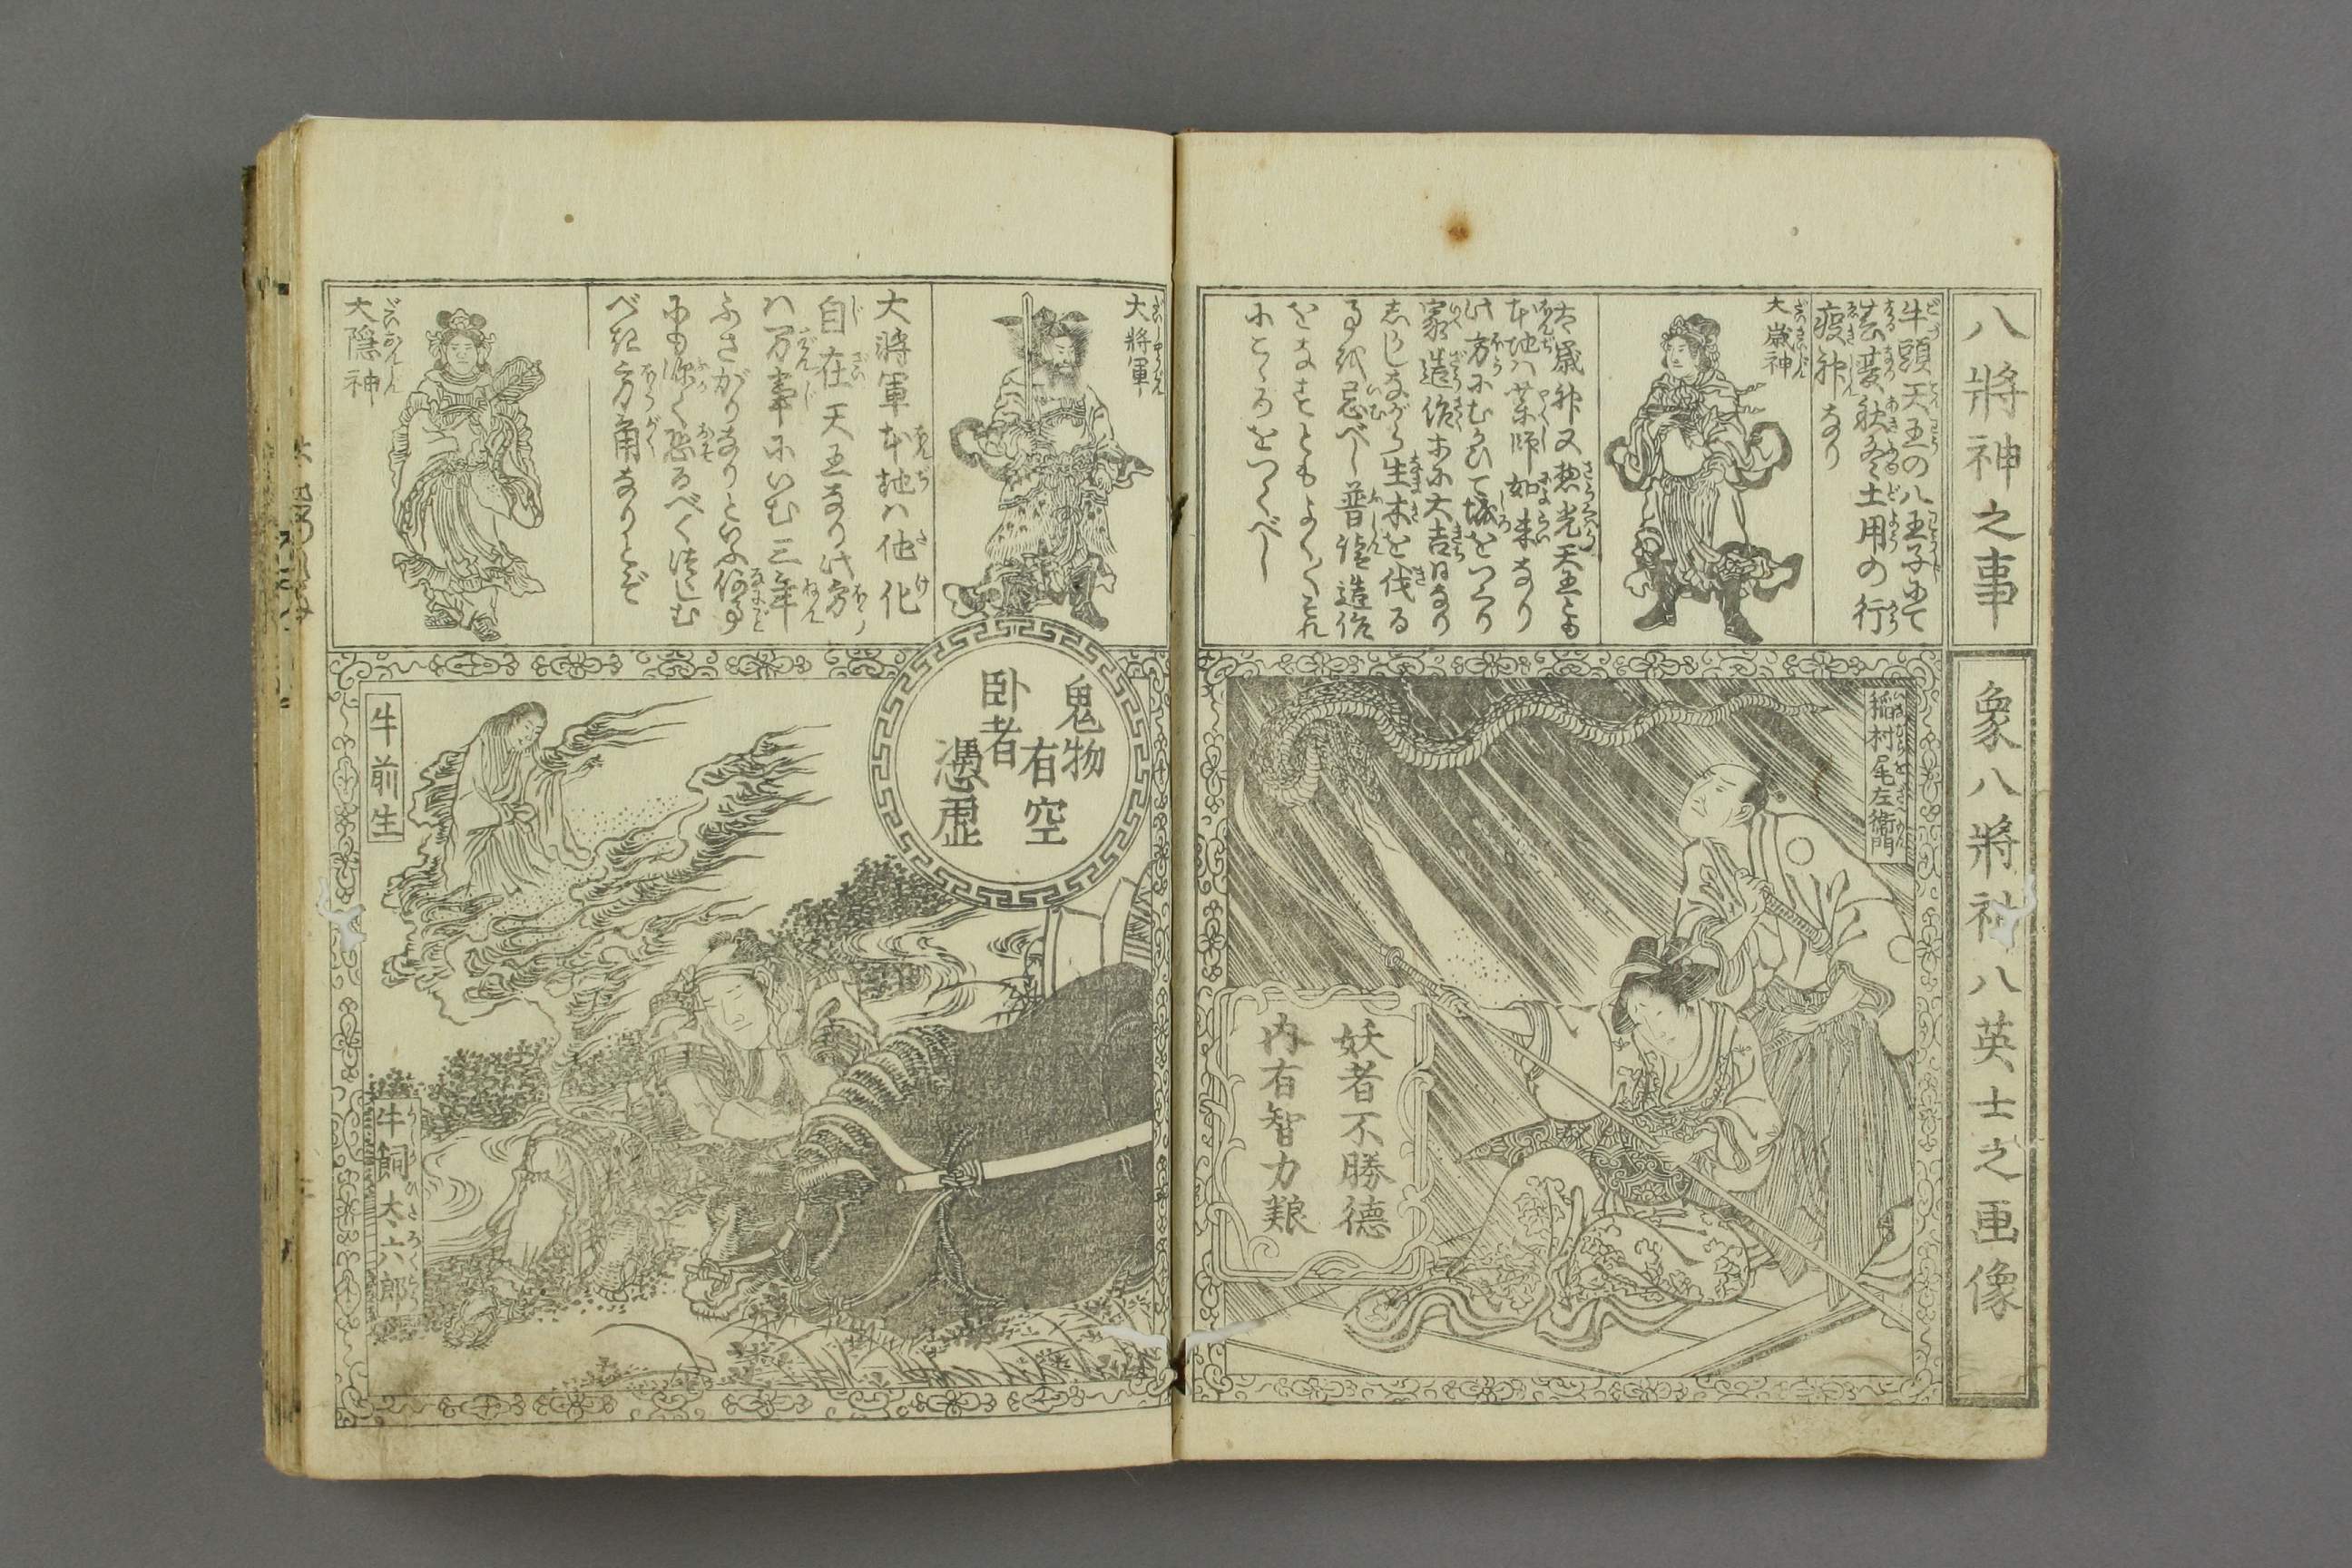 八將神之事
象八將神八英士之画像
牛頭天王の八王子にて
春夏秋冬土用の行
疫神なり
大歳神
太歳神又惣光天王とも
本地ハ薬師如来なり
此方にむかひて城をつくり
家造作よろづに大吉日なり
しかしながら生木を伐る
事を忌べし普請造作
をなすともよく〳〵これ
にこゝろをつくべし
稲村尾左衛門
妖者不勝德
内有智力粮
大將軍
大將軍本地ハ他化
自在天王なり此方
ハ万事にいむ三年
ふさがりなりといふ何事
にも深く恐るべくつゝしむ
べき方角なりとぞ
大隠神
鬼物
有空
卧者
憑虚
牛前生
牛飼太六郎